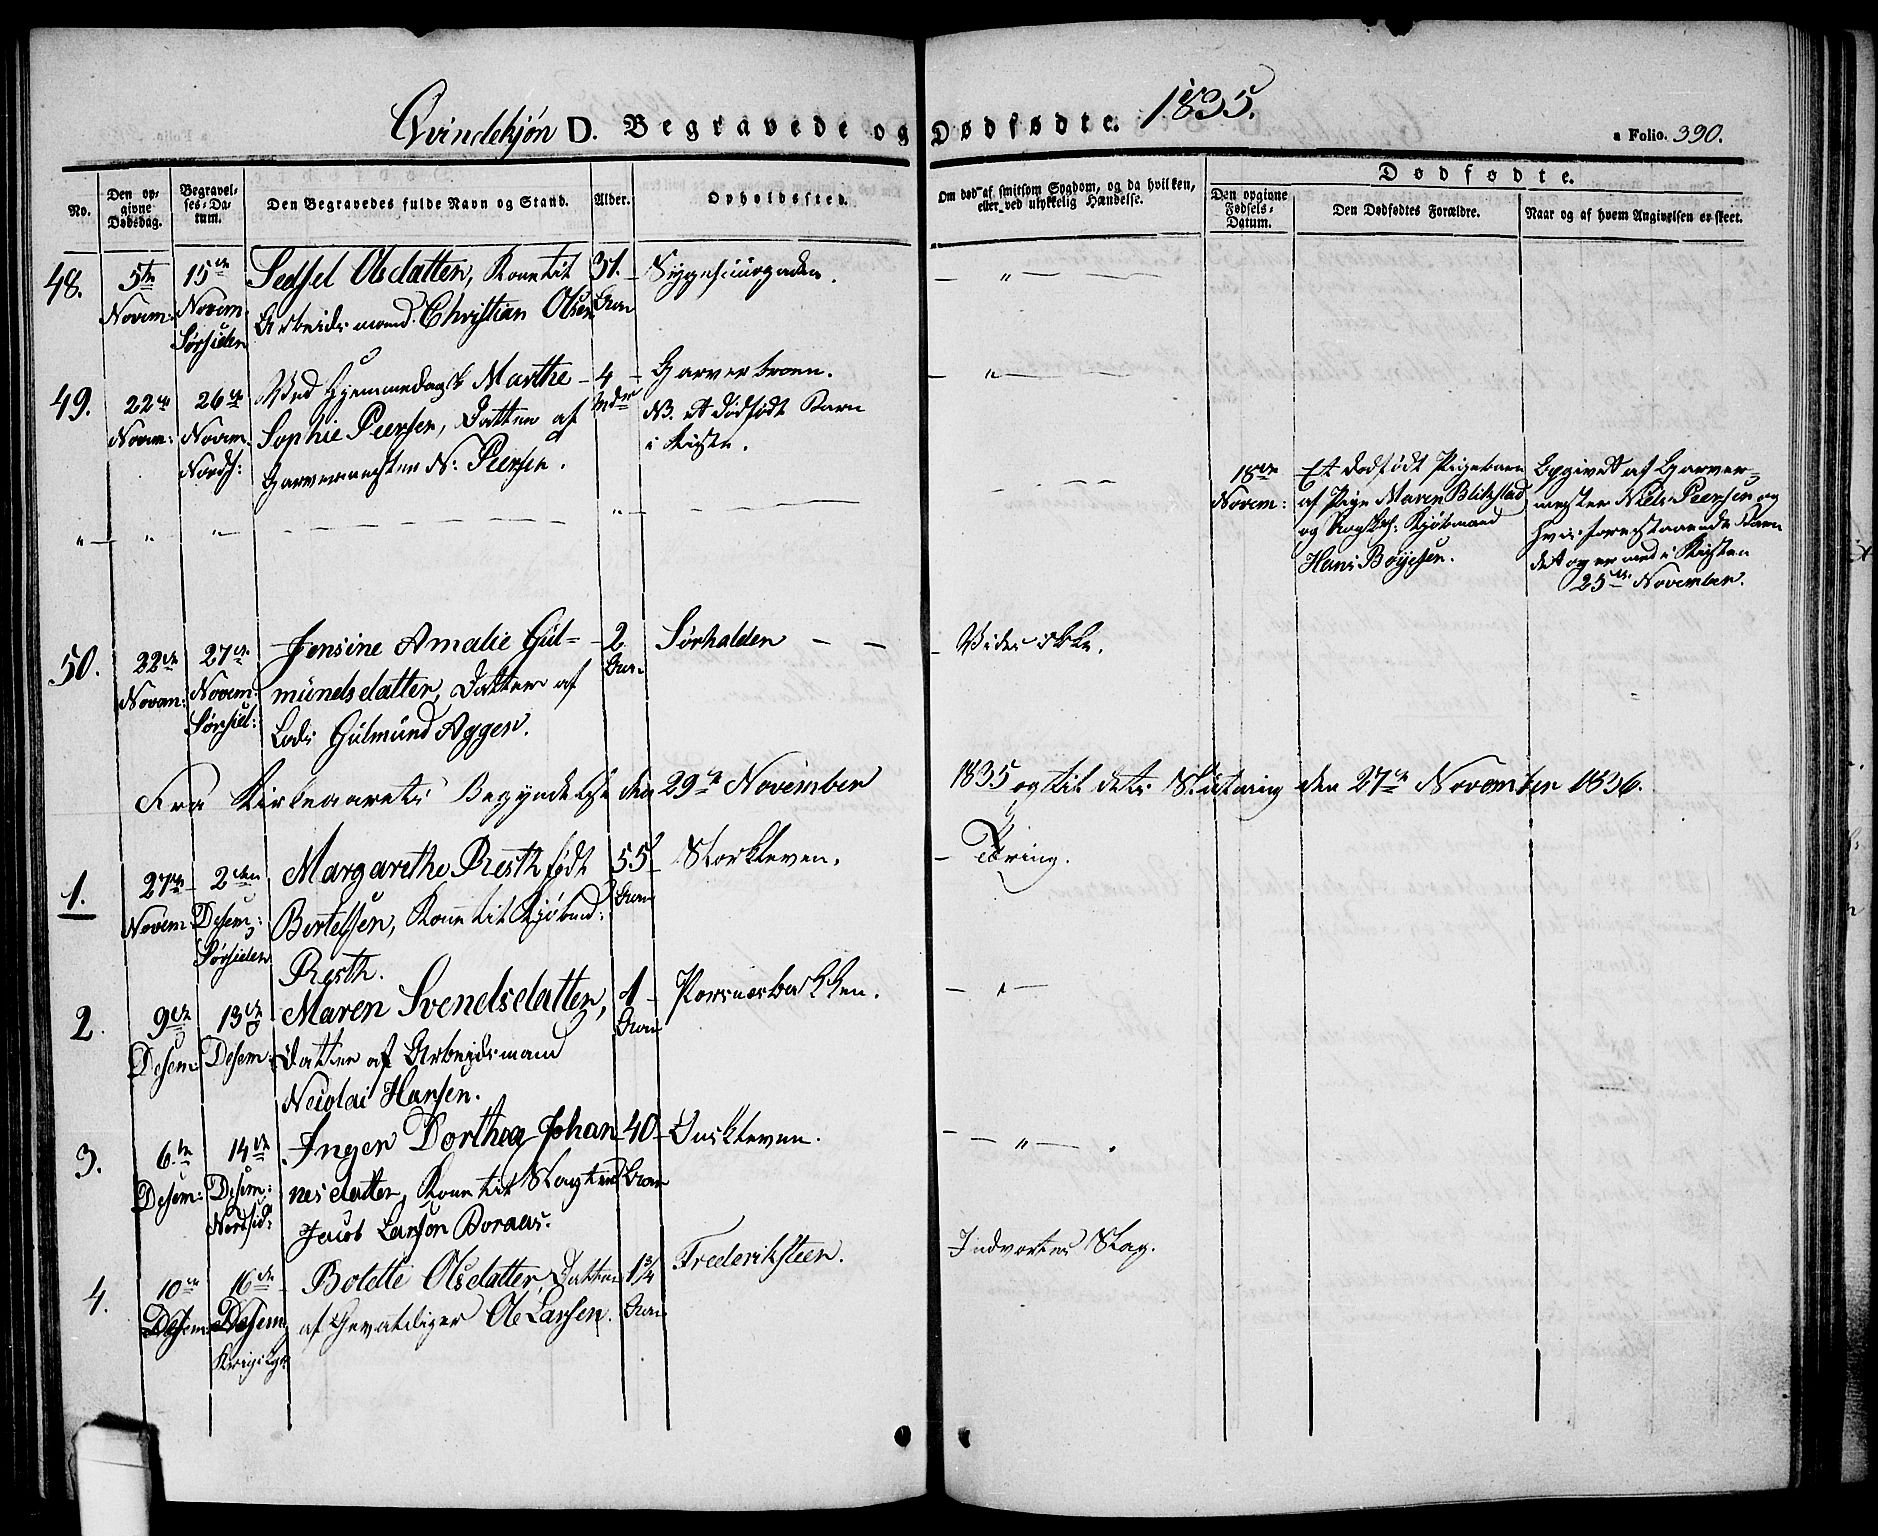 Qvindekjøn D. Begravede og Dødfødte. 1835.
a Folio. 390.
No.
Den opgivne Dødsdag.
Begravelses-Datum.
Den Begravedes fulde Navn og Stand.
Alder.
Opholdssted.
Om død af smitsom Sygdom, og da hvilken, eller ved ulykkelig Hændelse.
Dødfødte.
Den opgivne Fødsels-Datum.
Den Dødfødtes Forældre.
Naar og af hvem Angivelsen er skeet.
48. 5te Novem: 15de Novem. Sørsiden
Sedsel Olsdatter, Kone til
Arbeidsmand Christian Olsen
31. Aar
49. 22de Novem: 26de Novem. Nords:
Ved Hjemmedaab Marthe
Sophie Peersen, Datter af
Garvermester N: Peersen.
4 Mdr
Garverbroen.
NB. et dødfødt Barn
i Kiste.
18de Novem:
Et dødfødt Pigebarn
af Pige Maren Blikstad
og Kjøbmand
Hans Bøyesen.
Opgivet af Garver-
mester Niels Peersen og
hvis forestaaende Barn
det og er med i Kisten
25de November.
50. 22de Novem: 27de Novem: Sørsid:
Jensine Amalie Gul-
mundsdatter, Datter af
Lods Gulmund Aggen.
2 Aar
Sørhalden
Vides ikke.
Fra Kirkeaarets Begyndelse den 29de November 1835 og til dets Slutning den 27de November 1836.
1. 27de Novem 2den Desem: Sørsiden
Margarethe Resth født
Bertelsen, Kone til Kjøbmd:
Resth.
55 Aar
Storkleven.
Tæring.
2. 9de Desem: 13de Desem:
Maren Svendsdatter,
Datter af Arbeidsmand
Nicolai Hansen.
1 Aar
Porsnesbakken.
3. 6te Desem: 14de Desem: Nordsid:
Inger Dorthea Johan
nesdatter, Kone til Slagter
Jacob Larson Boraas.
40 Aar
4. 10de Desem: 16de Desem.
Bolette Olsdatter, Datter
af Gevaldiger Ole Larsen.
1 3/4 Aar
Frederiksteen.
Indvortes Slag.